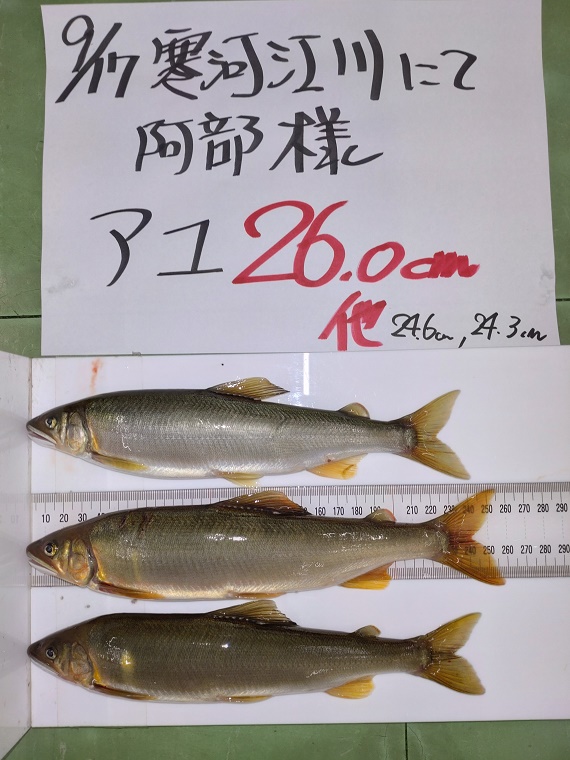 9/17 寒河江川にて
阿部様
アユ 26.0cm
他 24.6cm, 24.3cm
10 20 30 160 170 180 190 210 220 230 240 250 260 270 280 290
240 250 260 270 280 290